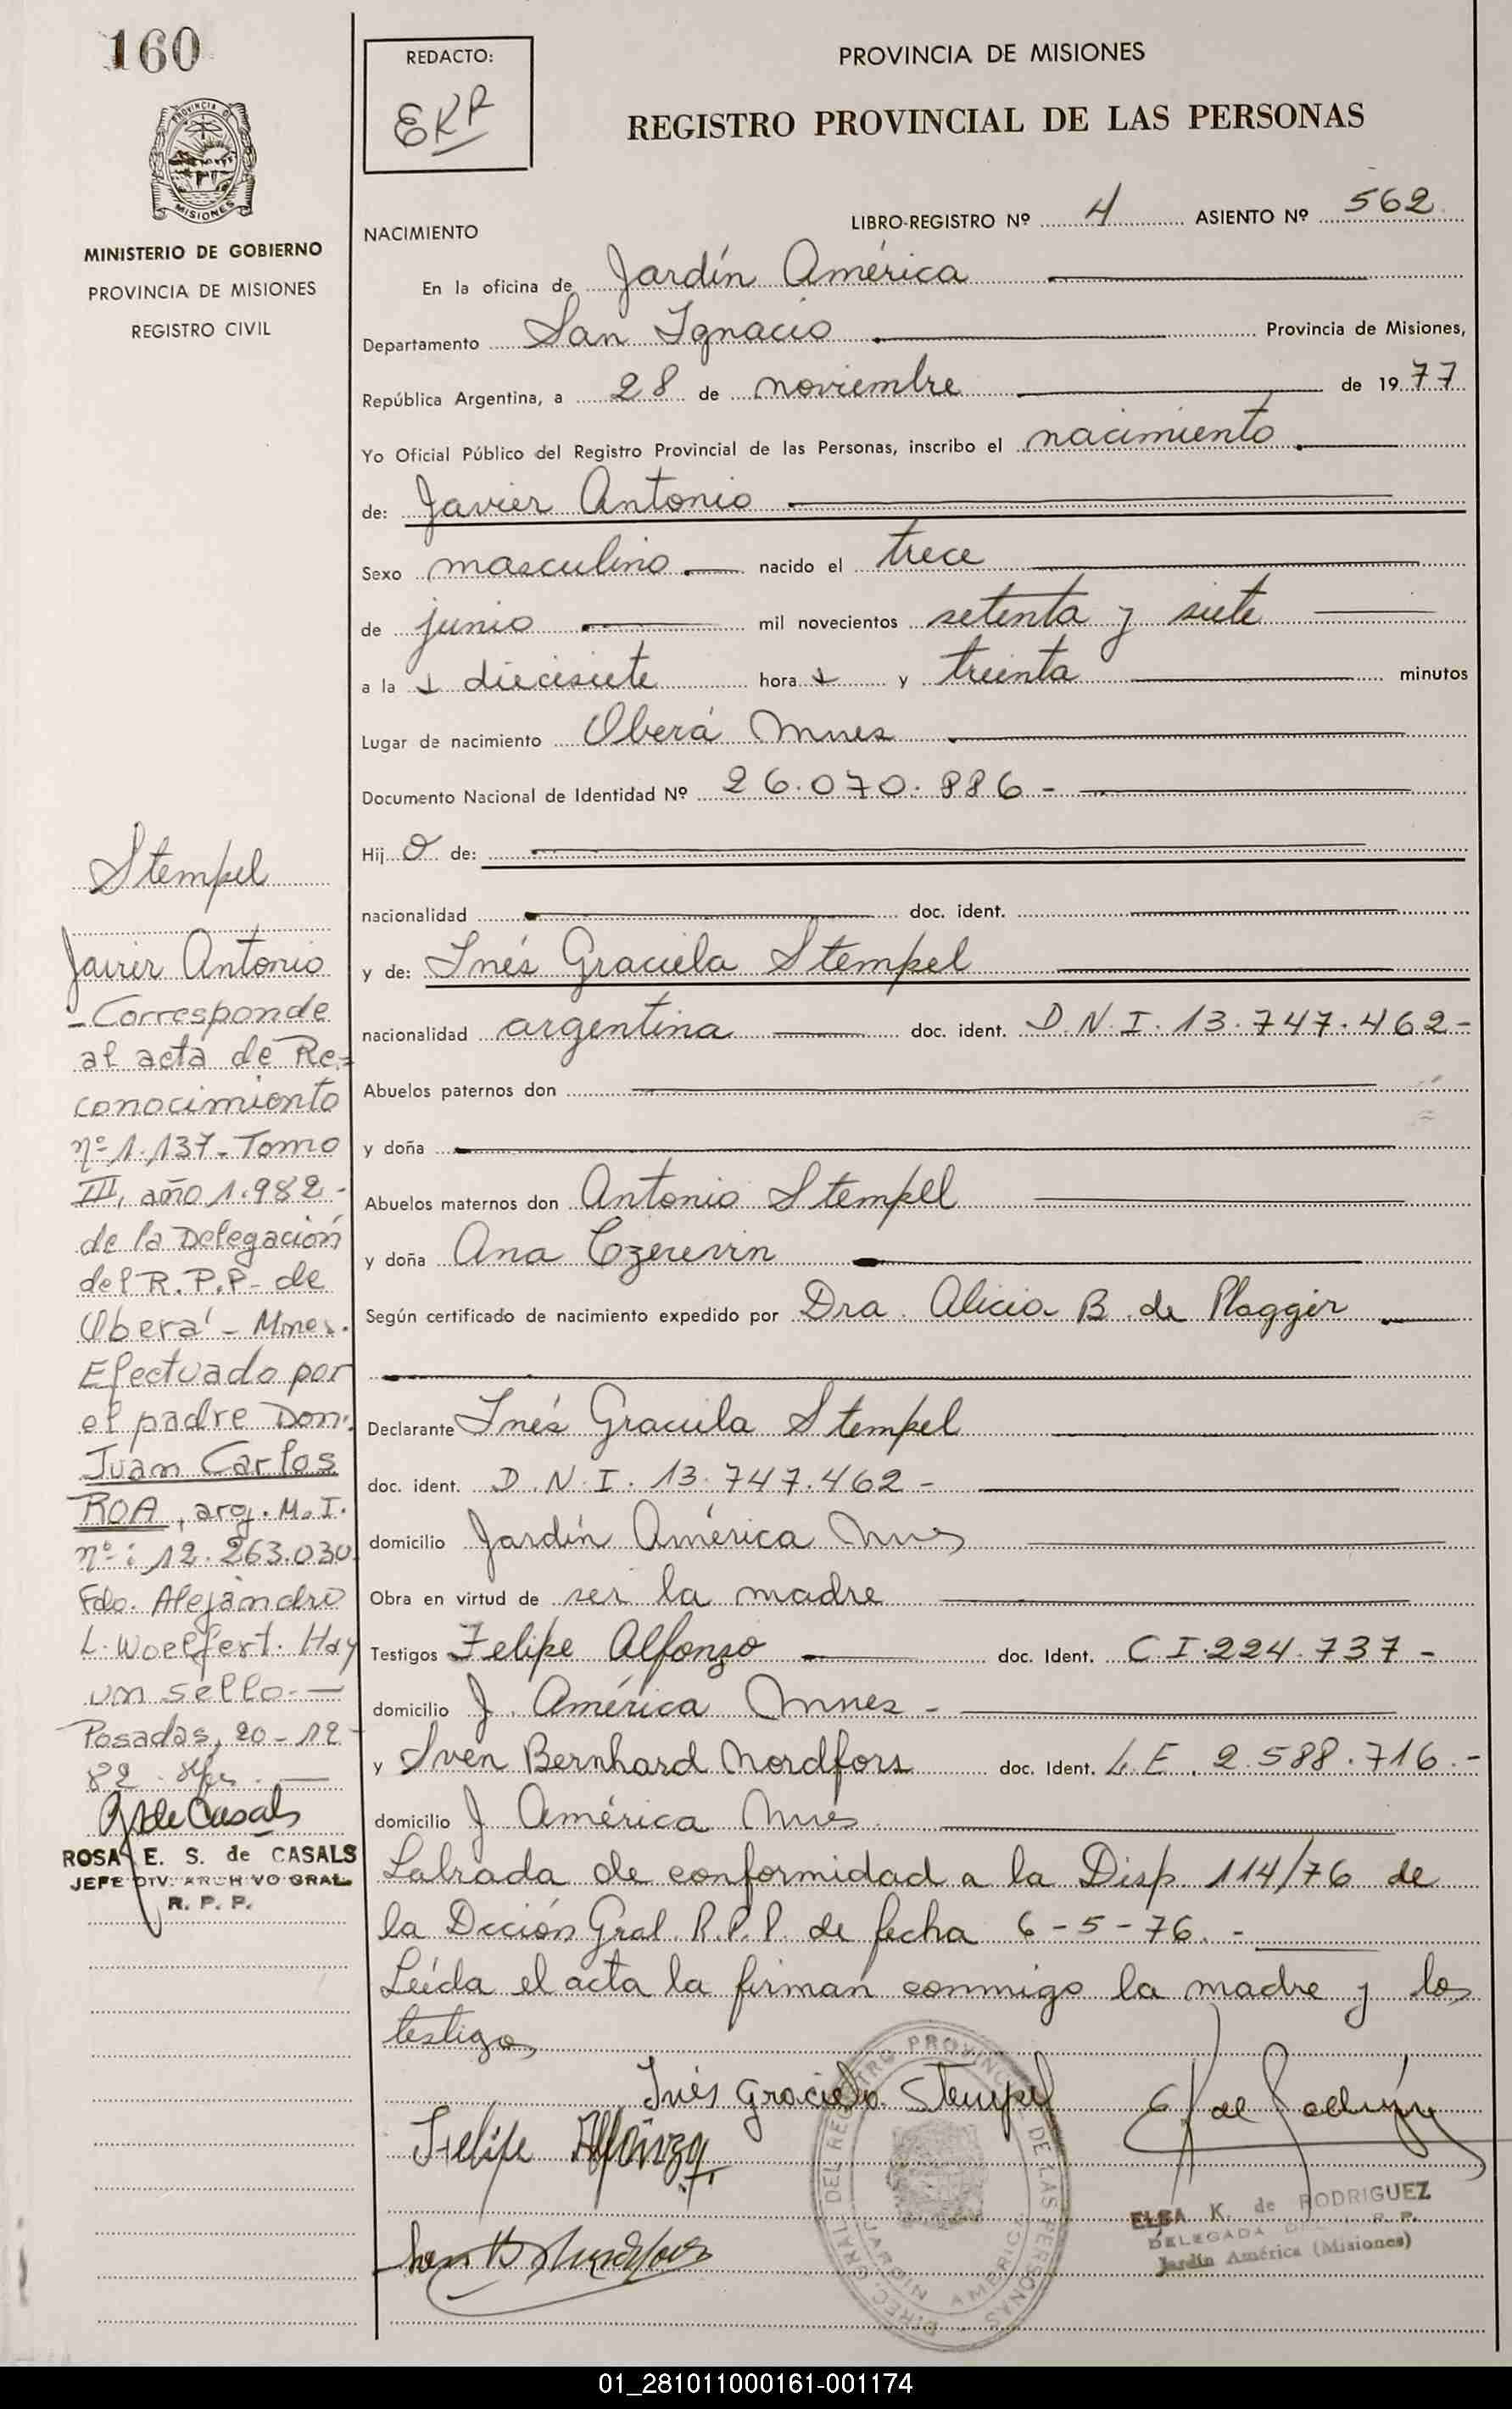 160
MINISTERIO DE GOBIERNO
PROVINCIA DE MISIONES
REGISTRO CIVIL
REDACTO:
EKR
PROVINCIA DE MISIONES
REGISTRO PROVINCIAL DE LAS PERSONAS
LIBRO-REGISTRO Nº 4 ASIENTO Nº 562
NACIMIENTO
En la oficina de Jardín América
Departamento San Ignacio Provincia de Misiones,
República Argentina, a 28 de noviembre de 1977
Yo Oficial Público del Registro Provincial de las Personas, inscribo el nacimiento
de: Javier Antonio
Sexo masculino nacido el trece
de junio mil novecientos setenta y siete
a las diecisiete horas y treinta minutos
Lugar de nacimiento Oberá Mnes
Documento Nacional de Identidad Nº 26.070.886-
Hijo de:
nacionalidad doc. ident.
y de: Inés Graciela Stempel
nacionalidad argentina doc. ident. D.N.I. 13.747.462-
Abuelos paternos don
y doña
Abuelos maternos don Antonio Stempel
y doña Ana
Según certificado de nacimiento expedido por Dra. Alicia B. de Plagger
Declarante Inés Graciela Stempel
doc. ident. D.N.I. 13.747.462-
domicilio Jardín América Mnes
Obra en virtud de ser la madre
Testigos Felipe Alfonzo doc. Ident. C.I. 224.737-
domicilio J. América Mnes-
y Sven Bernhard Nordfors doc. Ident. L.E. 2.588.716.-
domicilio J. América Mnes
Labrada de conformidad a la Disp. 114/76 de
la Dcción Gral. R.P.P. de fecha 6-5-76.-
Leída el acta la firman conmigo la madre y los
testigos
Inés Graciela Stempel
Felipe Alfonzo
ELSA K. de RODRIGUEZ
DELEGADA DEL R. P. P.
Jardín América (Misiones)
DIREC. GRAL. DEL REGISTRO PROVINCIAL DE LAS PERSONAS
JARDIN AMERICA
Stempel
Javier Antonio
-Corresponde
al acta de Re=
conocimiento
nº 1.137-Tomo
III, año 1.982-
de la Delegación
del R.P.P- de
Oberá - Mnes.
Efectuado por
el padre Don:
Juan Carlos
ROA, arg. M.I.
nº: 12.263.030
Fdo. Alejandro
L. Woelfert. Hay
un sello.-
Posadas, 20-12-
82.
R de Casals
ROSA E. S. de CASALS
JEFE DIV. ARCHIVO GRAL.
R. P. P.
01_281011000161-001174